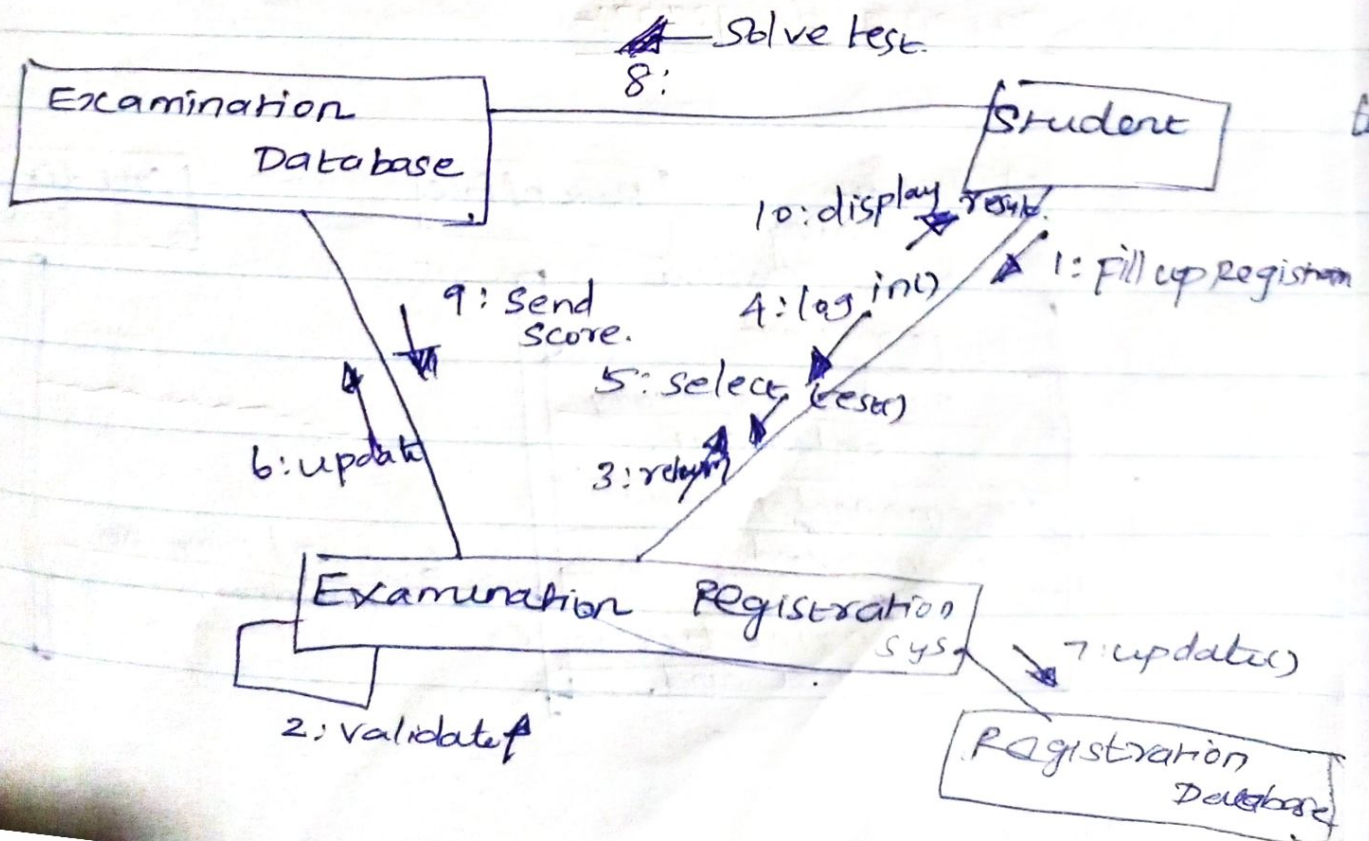 Solve test.
8:
Examination
Database
Student
10: display result.
1: Fill up Registration
9: Send
score.
4: log in()
5: select test()
3: return
6: update
Examination Registration
sys.
7: update()
2: validate
Registration
Database